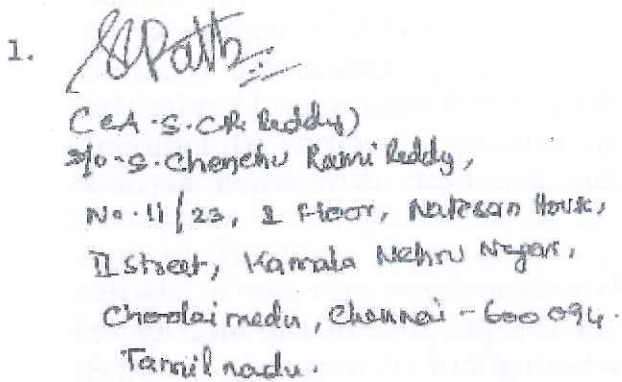 1.
(CA.S.CR. Reddy)
S/o.S.Chenchu Rami Reddy,
No.11/23, I Floor, Natesan House,
II Street, Kamala Nehru Nagar,
Choolaimedu, Chennai - 600 094.
Tamil nadu.